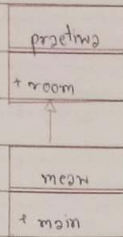 practiwa
+ room
meow
+ main